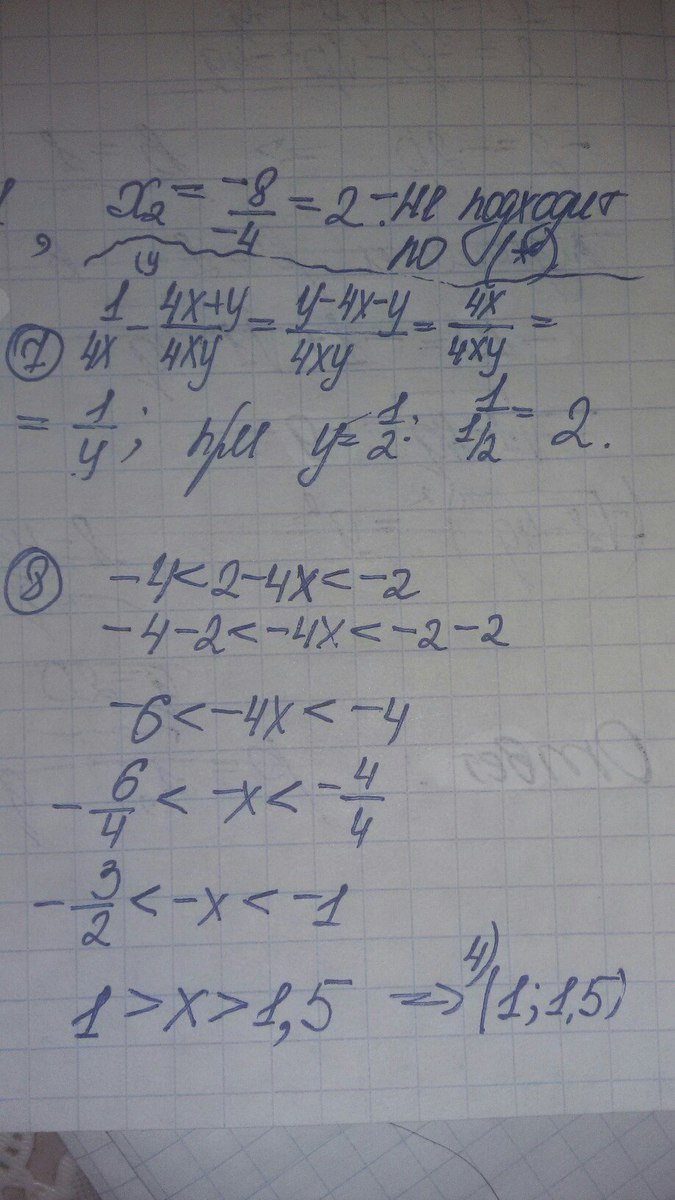 , x₂ = -8/-4 = 2 - не подходит
по (*)
⑦ 1/4x - 4x+y/4xy = y-4x-y/4xy = 4x/4xy =
= 1/y; при y = 1/2: 1/1/2 = 2.
⑧ -4 < 2 - 4x < -2
-4 - 2 < -4x < -2 - 2
-6 < -4x < -4
-6/4 < -x < -4/4
-3/2 < -x < -1
1 > x > 1,5 => 4) (1; 1,5)